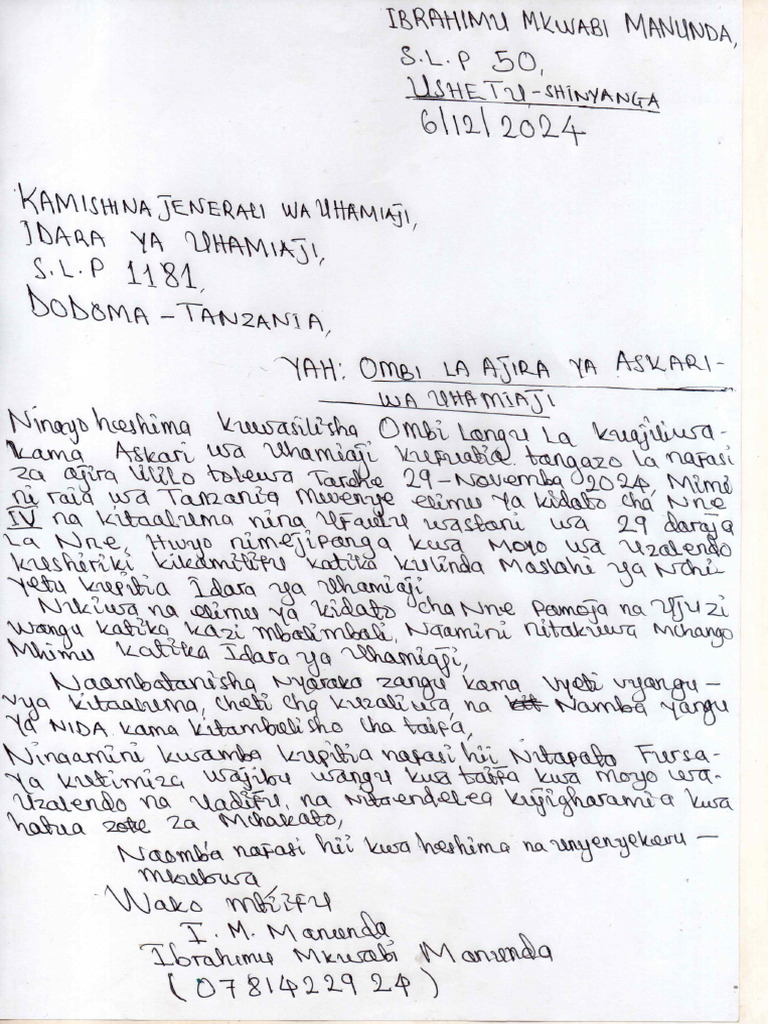 IBRAHIMU MKWABI MANUNDA,
S.L.P 50,
USHETU-SHINYANGA
6/12/2024
KAMISHINA JENERALI WA UHAMIAJI,
IDARA YA UHAMIAJI,
S.L.P 1181,
DODOMA - TANZANIA,
YAH: OMBI LA AJIRA YA ASKARI-
WA UHAMIAJI
Ninayo heshima kuwasilisha Ombi Langu la kuajiliwa-
kama Askari wa Uhamiaji kufuatia tangazo la nafasi
za ajira lililo tolewa Tarehe 29-Novemba 2024, Mimi
ni raia wa Tanzania Mwenye elimu ya kidato cha Nne
IV na kitaaluma nina Ufaulu wastani wa 29 daraja
La Nne, Hivyo nimejipanga kwa Moyo wa Uzalendo
kushiriki kikamilifu katika kulinda Maslahi ya Nchi-
yetu kupitia Idara ya Uhamiaji
Nikiwa na elimu ya kidato cha Nne Pamoja na Ujuzi
Wangu katika kazi mbalimbali, Naamini nitakuwa Mchango
Mhimu katika Idara ya Uhamiaji,
Naambatanisha Nyaraka zangu kama Vyeti vyangu-
vya kitaaluma, cheti cha kuzaliwa na kit Namba yangu
ya NIDA kama kitambulisho cha taifa,
Ninaamini kwamba kupitia nafasi hii Nitapata Fursa-
Ya kutimiza wajibu wangu kwa taifa kwa moyo wa-
Uzalendo na Uadilifu, na Nitaendelea kujigharamia kwa
hatua zote za Mchakato,
Naomba nafasi hii kwa heshima na unyenyekevu-
mkubwa,
Wako mtiifu
I. M. Manunda
Ibrahimu Mkwabi Manunda
(0781422924)